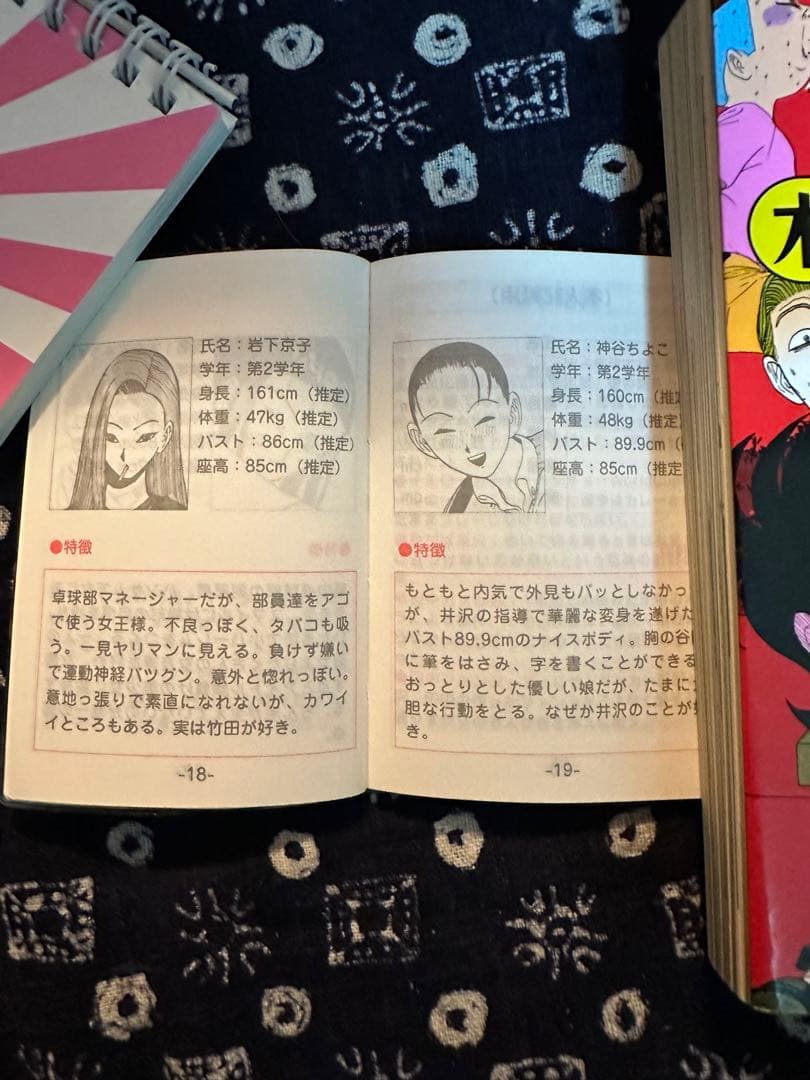 氏名：岩下京子
学年：第2学年
身長：161cm（推定）
体重：47kg（推定）
バスト：86cm（推定）
座高：85cm（推定）
●特徴
卓球部マネージャーだが、部員達をアゴ
で使う女王様。不良っぽく、タバコも吸
う。一見ヤリマンに見える。負けず嫌い
で運動神経バツグン。意外と惚れっぽい。
意地っ張りで素直になれないが、カワイ
イところもある。実は竹田が好き。
-18-
氏名：神谷ちよこ
学年：第2学年
身長：160cm（推定
体重：48kg（推定
バスト：89.9cm（
座高：85cm（推定
●特徴
もともと内気で外見もパッとしなかっ
が、井沢の指導で華麗な変身を遂げた
バスト89.9cmのナイスボディ。胸の谷
に筆をはさみ、字を書くことができる
おっとりとした優しい娘だが、たまに
胆な行動をとる。なぜか井沢のことが
き。
-19-